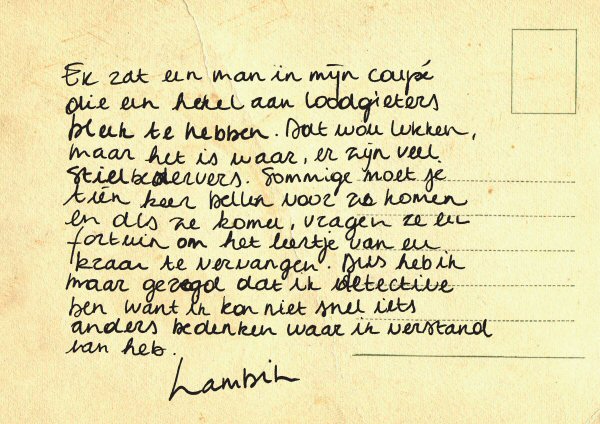 Er zat een man in mijn coupé
die een hekel aan loodgieters
bleek te hebben. Dat wou lukken,
maar het is waar, er zijn veel
stielbedervers. Sommige moet je
tien keer bellen voor ze komen
en als ze komen, vragen ze een
fortuin om het leertje van een
kraan te vervangen. Dus heb ik
maar gezegd dat ik detective
ben want ik kon niet snel iets
anders bedenken waar ik verstand
van heb.
Lambik